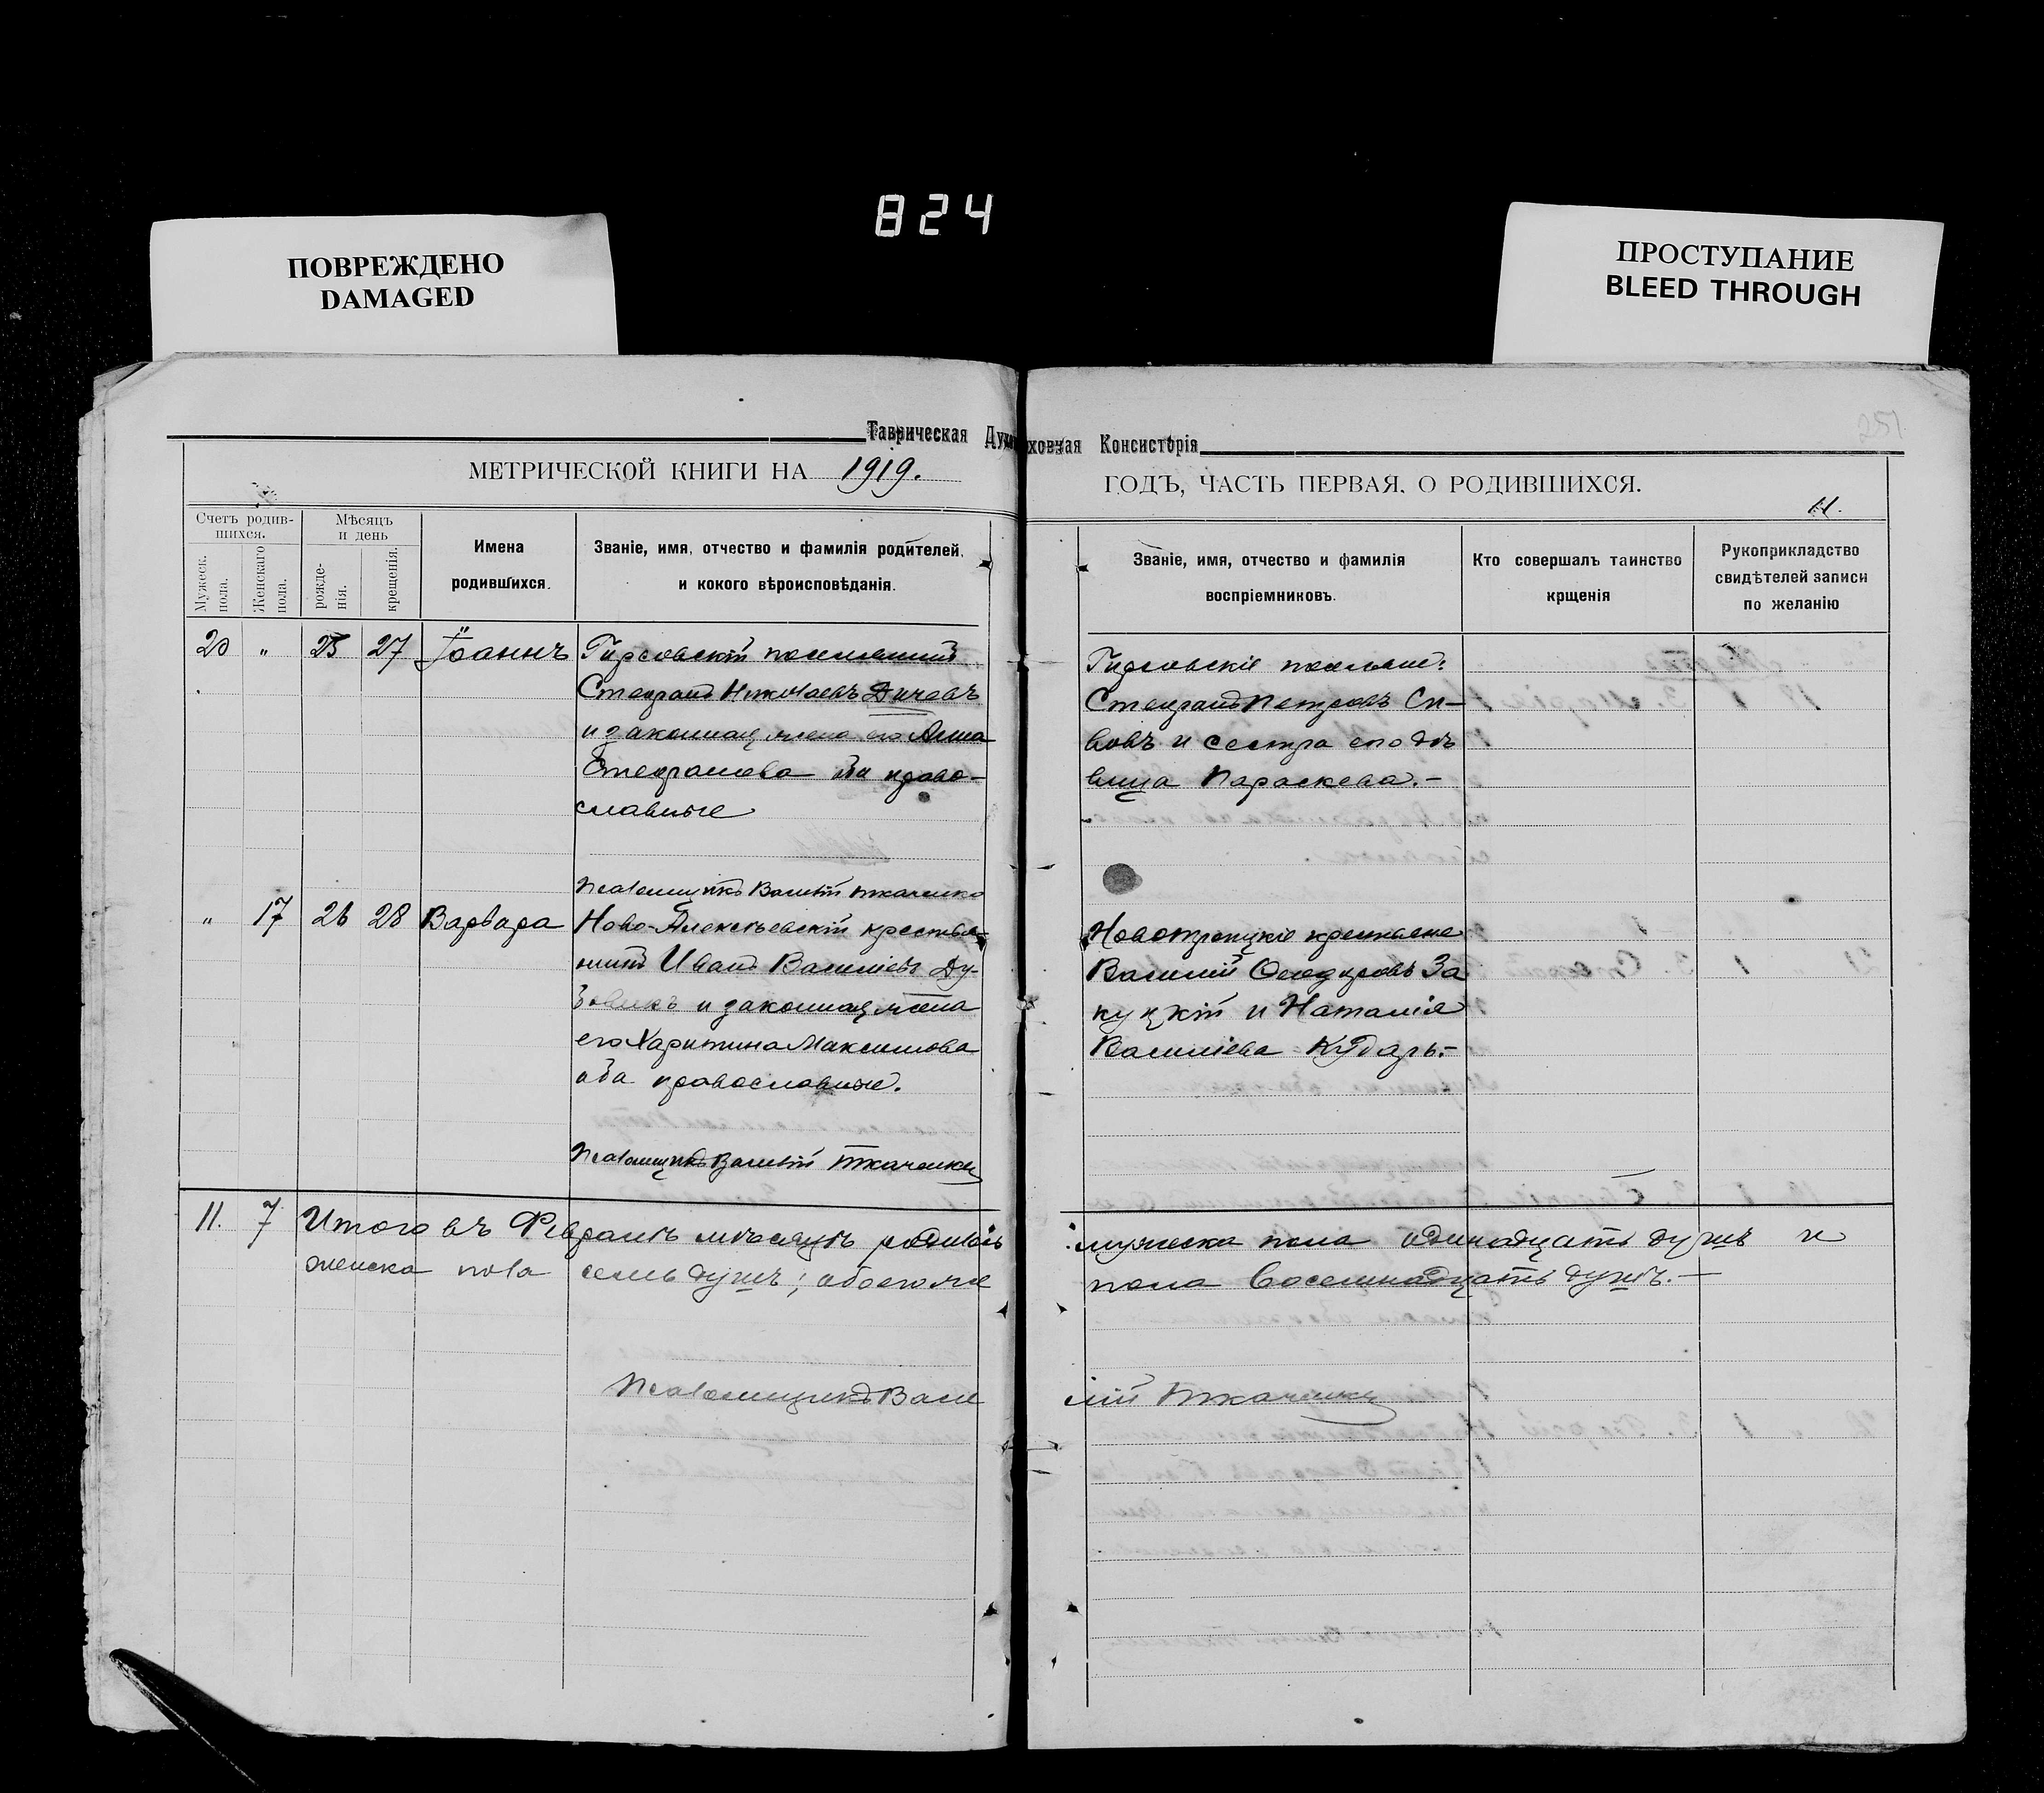 824
ПОВРЕЖДЕНО
DAMAGED
ПРОСТУПАНИЕ
BLEED THROUGH
251.
Таврическая Духовная Консисторія
МЕТРИЧЕСКОЙ КНИГИ НА 1919.
ГОДЪ, ЧАСТЬ ПЕРВАЯ, О РОДИВШИХСЯ.
Счетъ родив-
шихся.
Мужеск.
пола.
Женскаго
пола.
Мѣсяцъ
и день
рожде-
нія.
крещенія.
Имена
родившихся.
Званіе, имя, отчество и фамилія родителей,
и кокого вѣроисповѣданія.
Званіе, имя, отчество и фамилія
воспріемниковъ.
Кто совершалъ таинство
крщенія
Рукоприкладство
свидѣтелей записи
по желанію
20 " 25 27 Іоаннъ
Гирсовскій поселянинъ
Стефанъ Николаевъ Дичевъ
и законная жена его Анна
Стефанова оба право-
славные
Псаломщикъ Василій Ткаченко
Гирсовскіе поселяне:
Стефанъ Петровъ Си-
вовъ и сестра его дѣ
вица Параскева.-
" 17 26 28 Варвара
Ново-Алексѣевскій крестья-
нинъ Иванъ Василіевъ Ду-
бовикъ и законная жена
его Харитина Максимова
оба православные.
Псаломщикъ Василій Ткаченко
Новотроицкіе крестьяне
Василій Ѳеодоровъ За
куцкій и Наталія
Василіева Кударь.-
11. 7 Итого въ Февралѣ мѣсяцѣ родилось мужеска пола одинадцать душъ и
женска пола семь душъ; обоего же пола восемнадцать душъ.-
Псаломщикъ Василій Ткаченко